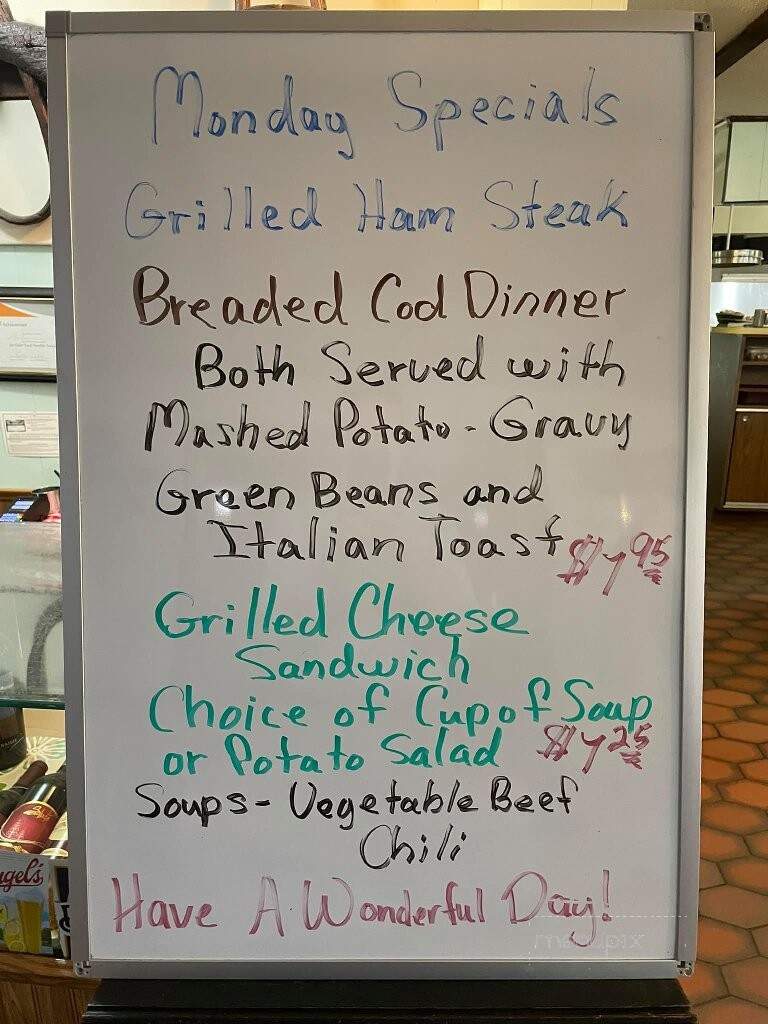 Monday Specials
Grilled Ham Steak
Breaded Cod Dinner
Both Served with
Mashed Potato - Gravy
Green Beans and
Italian Toast
Grilled Cheese
Sandwich
Choice of Cup of Soup
or Potato Salad
Soups - Vegetable Beef
Chili
Have A Wonderful Day!